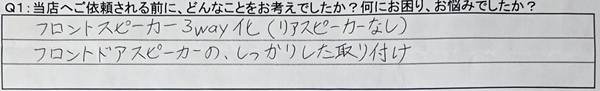 Q1：当店へご依頼される前に、どんなことをお考えでしたか？何にお困り、お悩みでしたか？
フロントスピーカー3way化（リアスピーカーなし）
フロントドアスピーカーの、しっかりした取り付け